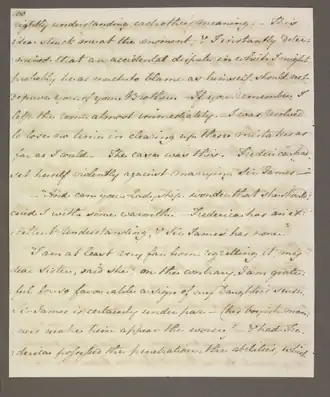 100
rightly understanding each other's meaning. – This
idea struck me at the moment, & I instantly deter-
-mined that an accidental dispute in which I might
probably be as much to blame as himself, should not
deprive you of your Brother. If you remember, I
left the room almost immediately. – I was resolved
to lose no time in clearing up these mistakes as
far as I could. – The case was this. Frederica had
set herself violently against marrying Sir James –
– "And can your Ladyship wonder that she should?
cried I with some warmth. – Frederica has an ex-
cellent Understanding, & Sir James has none."
"I am at least very far from regretting it, my
dear Sister, said she; on the contrary, I am grate-
ful for so favourable a sign of my Daughter's sense.
Sir James is certainly under par – (his boyish man-
ners make him appear the worse) – & had Fre-
derica possessed the penetration, the abilities, which